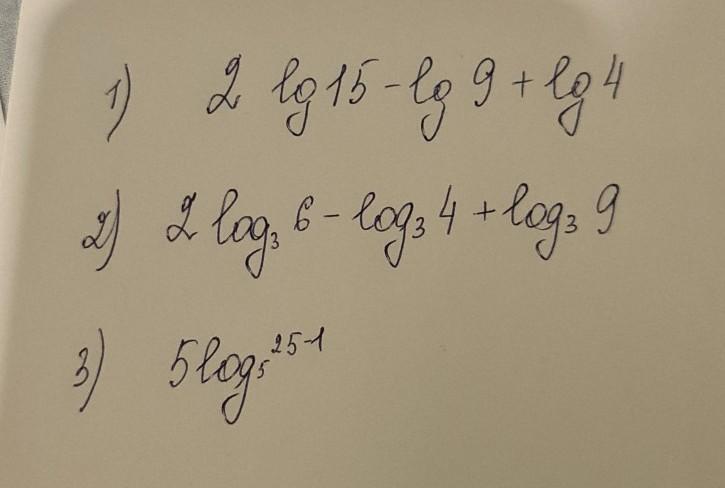 1) 2 lg 15 - lg 9 + lg 4
2) 2 log₃ 6 - log₃ 4 + log₃ 9
3) 5log₅²⁵⁻¹